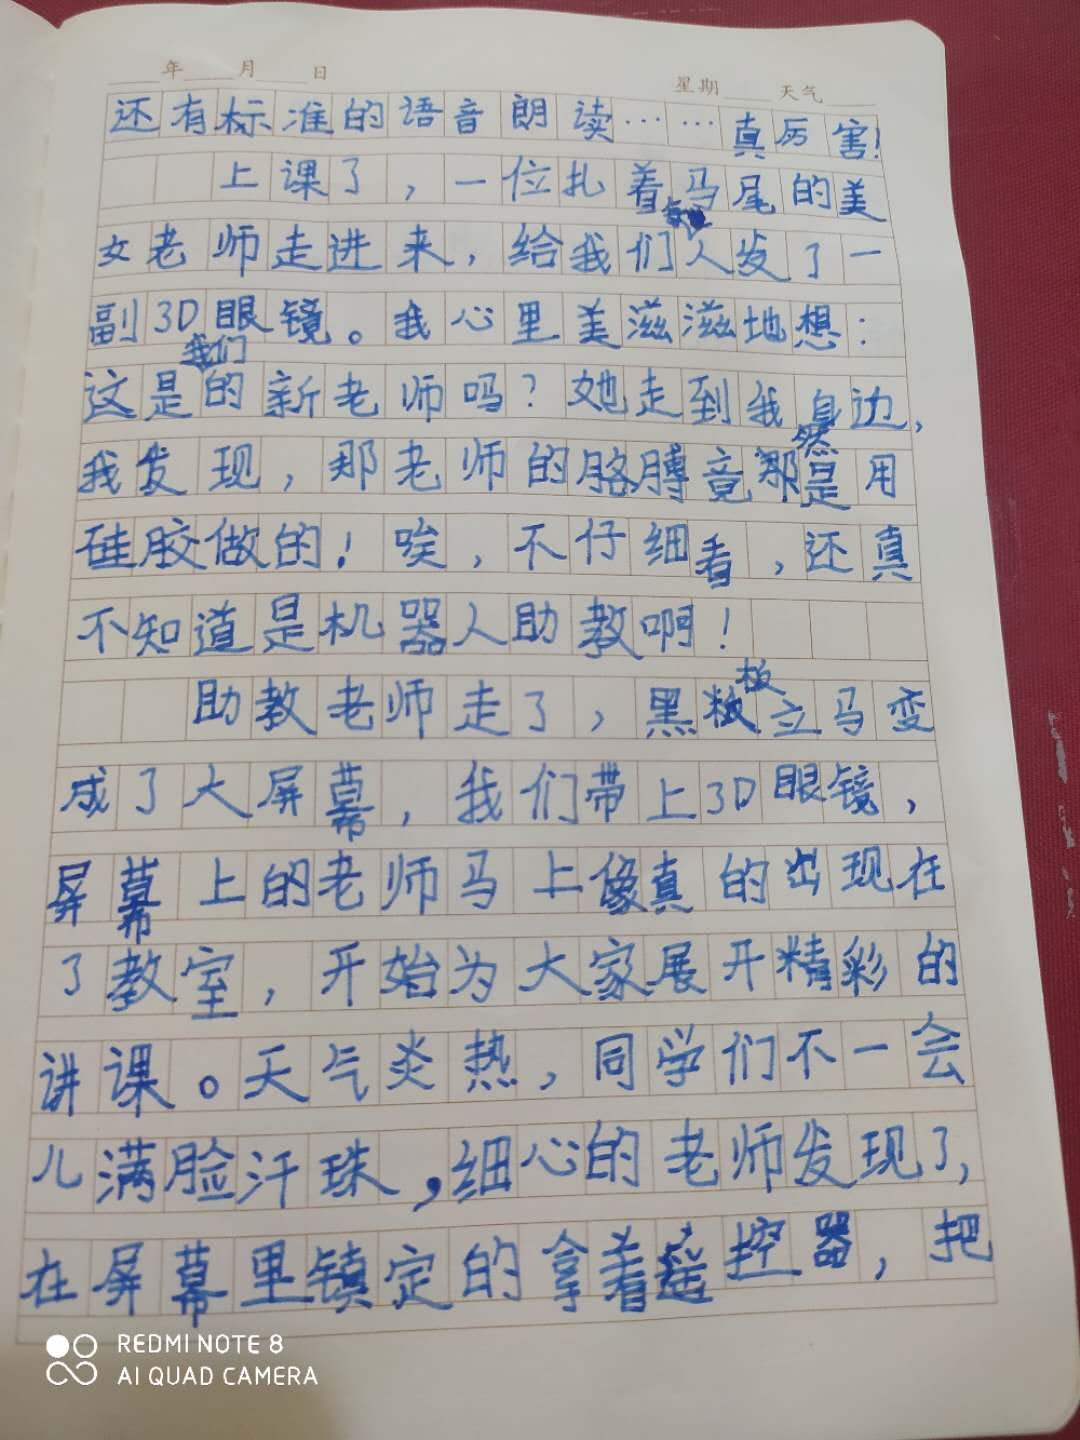 年 月 日 星期 天气
还有标准的语音朗读……真厉害!
上课了，一位扎着马尾的美
女老师走进来，给我们每人发了一
副3D眼镜。我心里美滋滋地想：
这是我们的新老师吗？她走到我身边，
我发现，那老师的胳膊竟然是用
硅胶做的！唉，不仔细看，还真
不知道是机器人助教啊！
助教老师走了，黑板立马变
成了大屏幕，我们带上3D眼镜，
屏幕上的老师马上像真的出现在
了教室，开始为大家展开精彩的
讲课。天气炎热，同学们不一会
儿满脸汗珠，细心的老师发现了，
在屏幕里镇定的拿着遥控器，把
REDMI NOTE 8
AI QUAD CAMERA